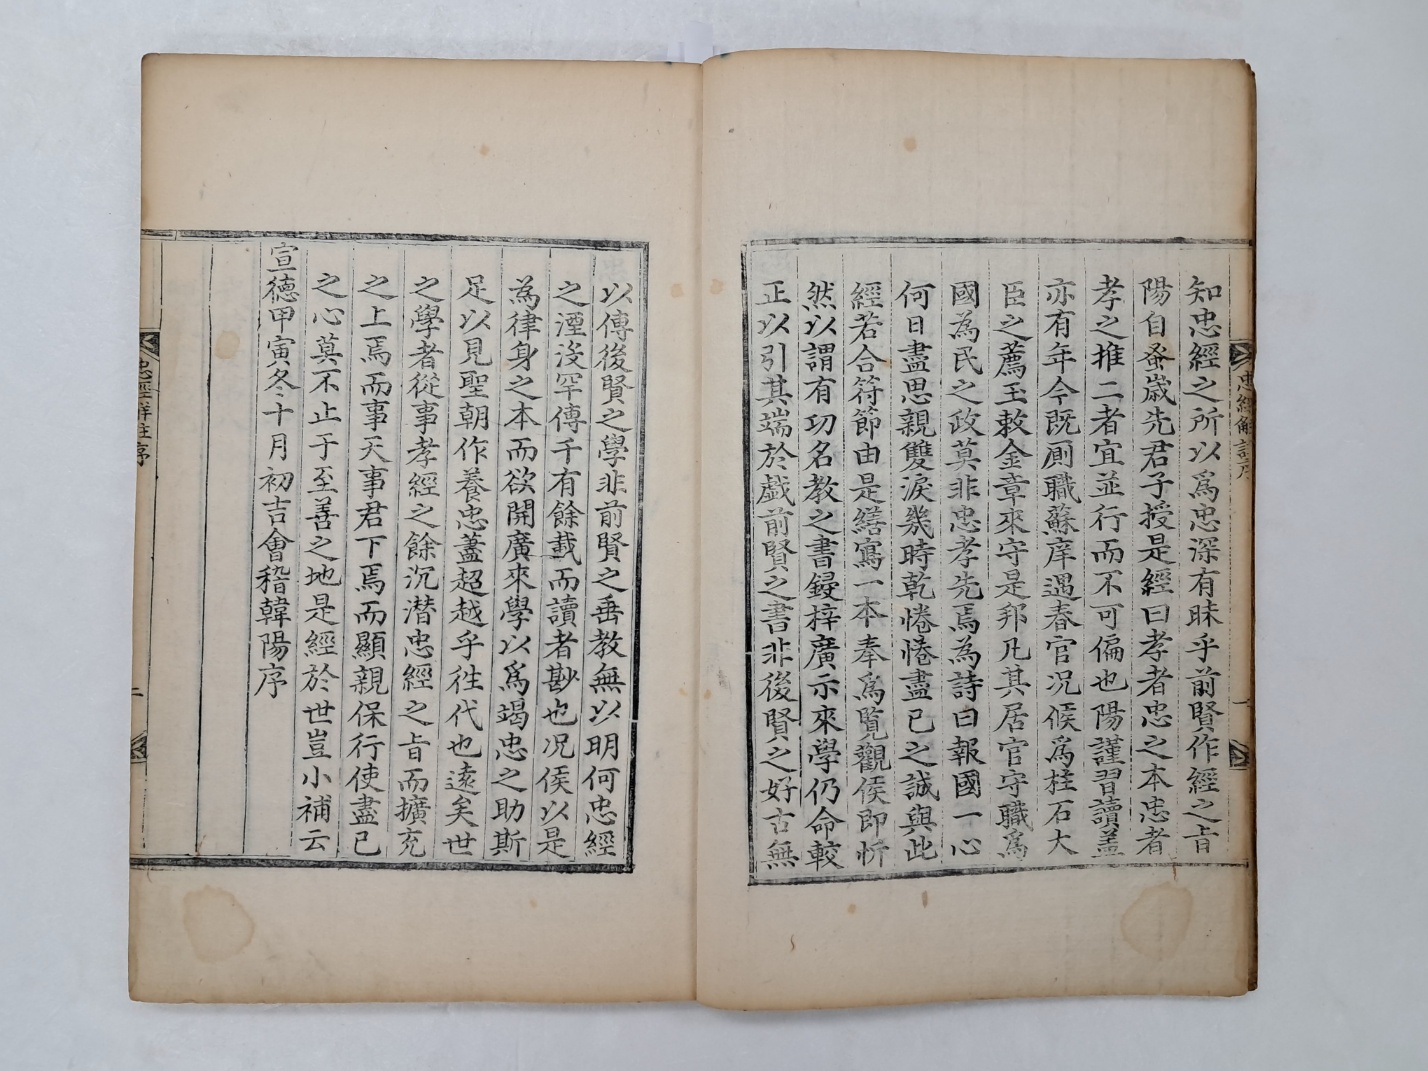 忠經解註序
一
知忠經之所以爲忠深有昧乎前賢作經之旨
陽自蚤歲先君子授是經曰孝者忠之本忠者
孝之推二者宜並行而不可偏也陽謹習讀盖
亦有年今既厠職蘇庠遇春官况侯爲柱石大
臣之薦玉敕金章來守是邦凡其居官守職爲
國為民之政莫非忠孝先焉為詩曰報國一心
何日盡思親雙淚幾時乾惓惓盡已之誠與此
經若合符節由是繕寫一本奉爲覽觀侯即忻
然以謂有功名教之書鋟梓廣示來學仍命較
正以引其端於戯前賢之書非後賢之好古無
以傳後賢之學非前賢之垂教無以明何忠經
之湮沒罕傳千有餘載而讀者尠也况侯以是
為律身之本而欲開廣來學以爲竭忠之助斯
足以見聖朝作養忠蓋超越乎徃代也遠矣世
之學者從事孝經之餘沉潜忠經之旨而擴充
之上焉而事天事君下焉而顯親保行使盡已
之心莫不止于至善之地是經於世豈小補云
宣德甲寅冬十月初吉會稽韓陽序
忠經解註序
二